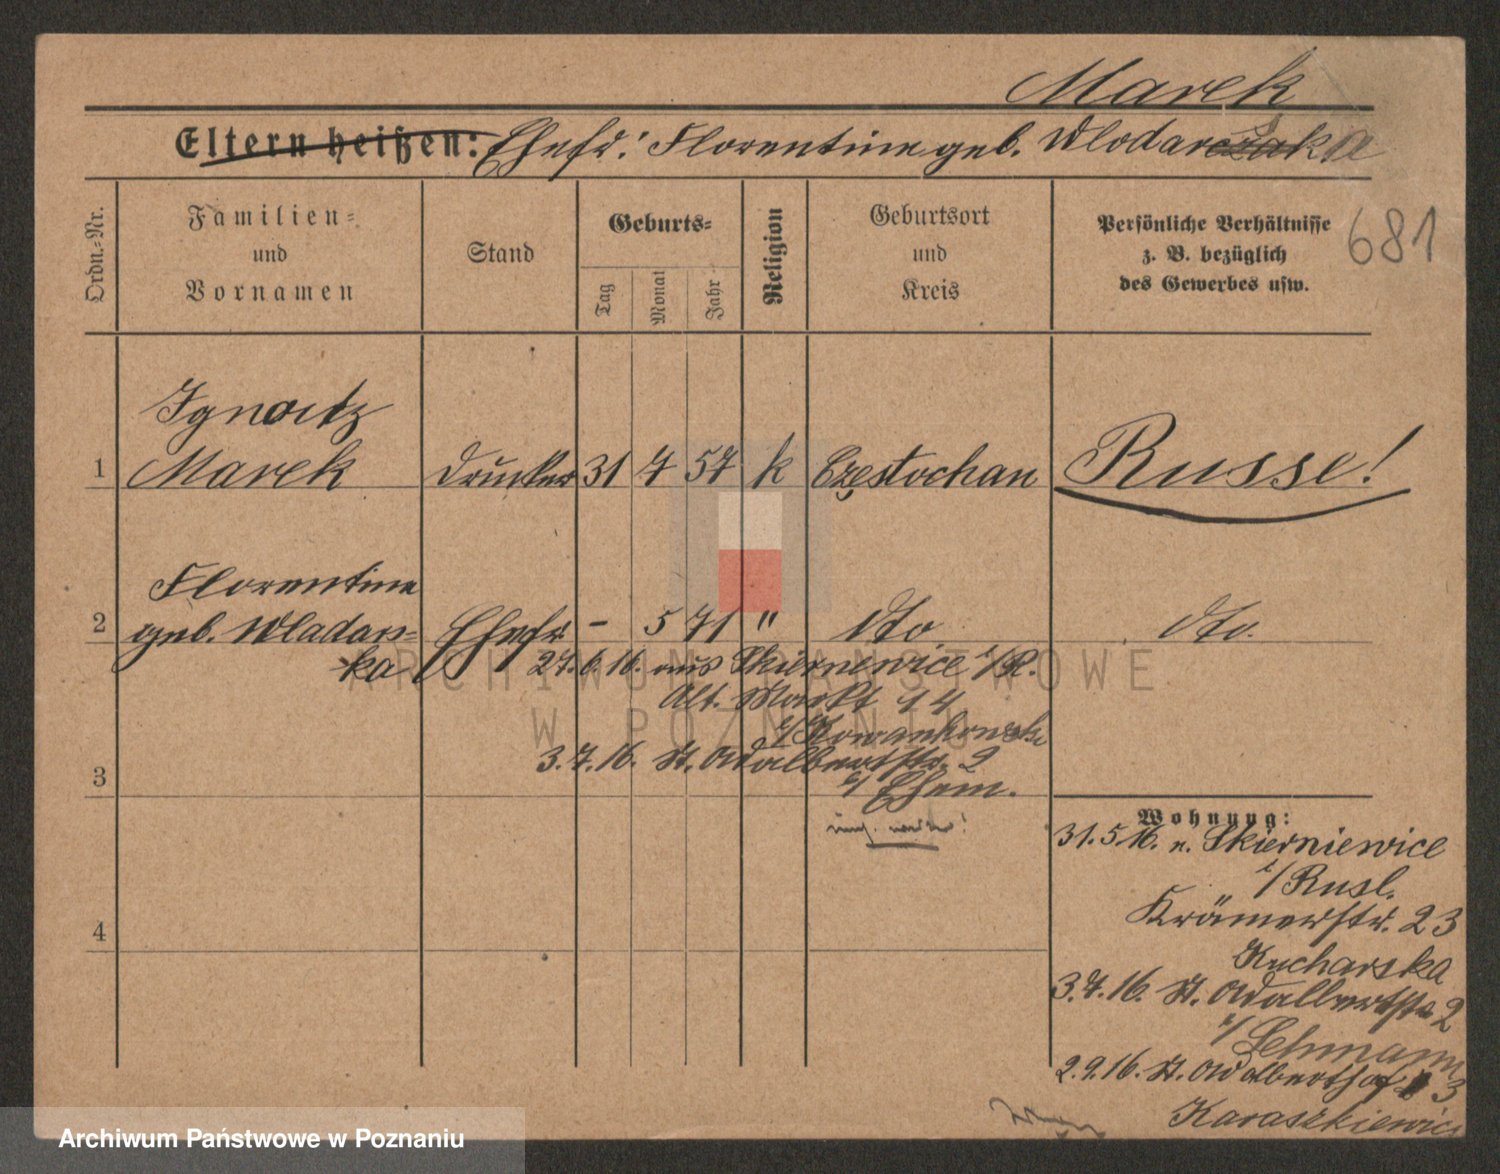 Marek
Eltern heißen: Ehefr: Florentine geb. Wlodarczak ka
681
Ordn.=Nr.
Familien=
und
Vornamen
Stand
Geburts=
Tag
Monat
Jahr
Religion
Geburtsort
und
Kreis
Persönliche Verhältnisse
z. B. bezüglich
des Gewerbes usw.
Ignatz
1 Marek Drucker 31 7 57 k Częstochau Russe!
Florentine
2 geb. Wladars= Ehefr. - 5 71 " dto dto.
ka 27.6.16. aus Skiernewice i/R.
Alt. Markt 14
3.7.16. St. Adalbertstr. 2
b/ Ehem.
3
Wohnung:
31.5.16. n. Skierniewice
i/Rusl.
4 Krämerstr. 23
Kucharska
3.7.16. St. Adalbertstr 2
b/ Lehmann
2.9.16. St. Adalberthof 3
Karaszkiewicz
ARCHIWUM PAŃSTWOWE
W POZNANIU
Archiwum Państwowe w Poznaniu